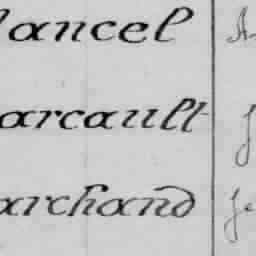 ancel
arcault
archand